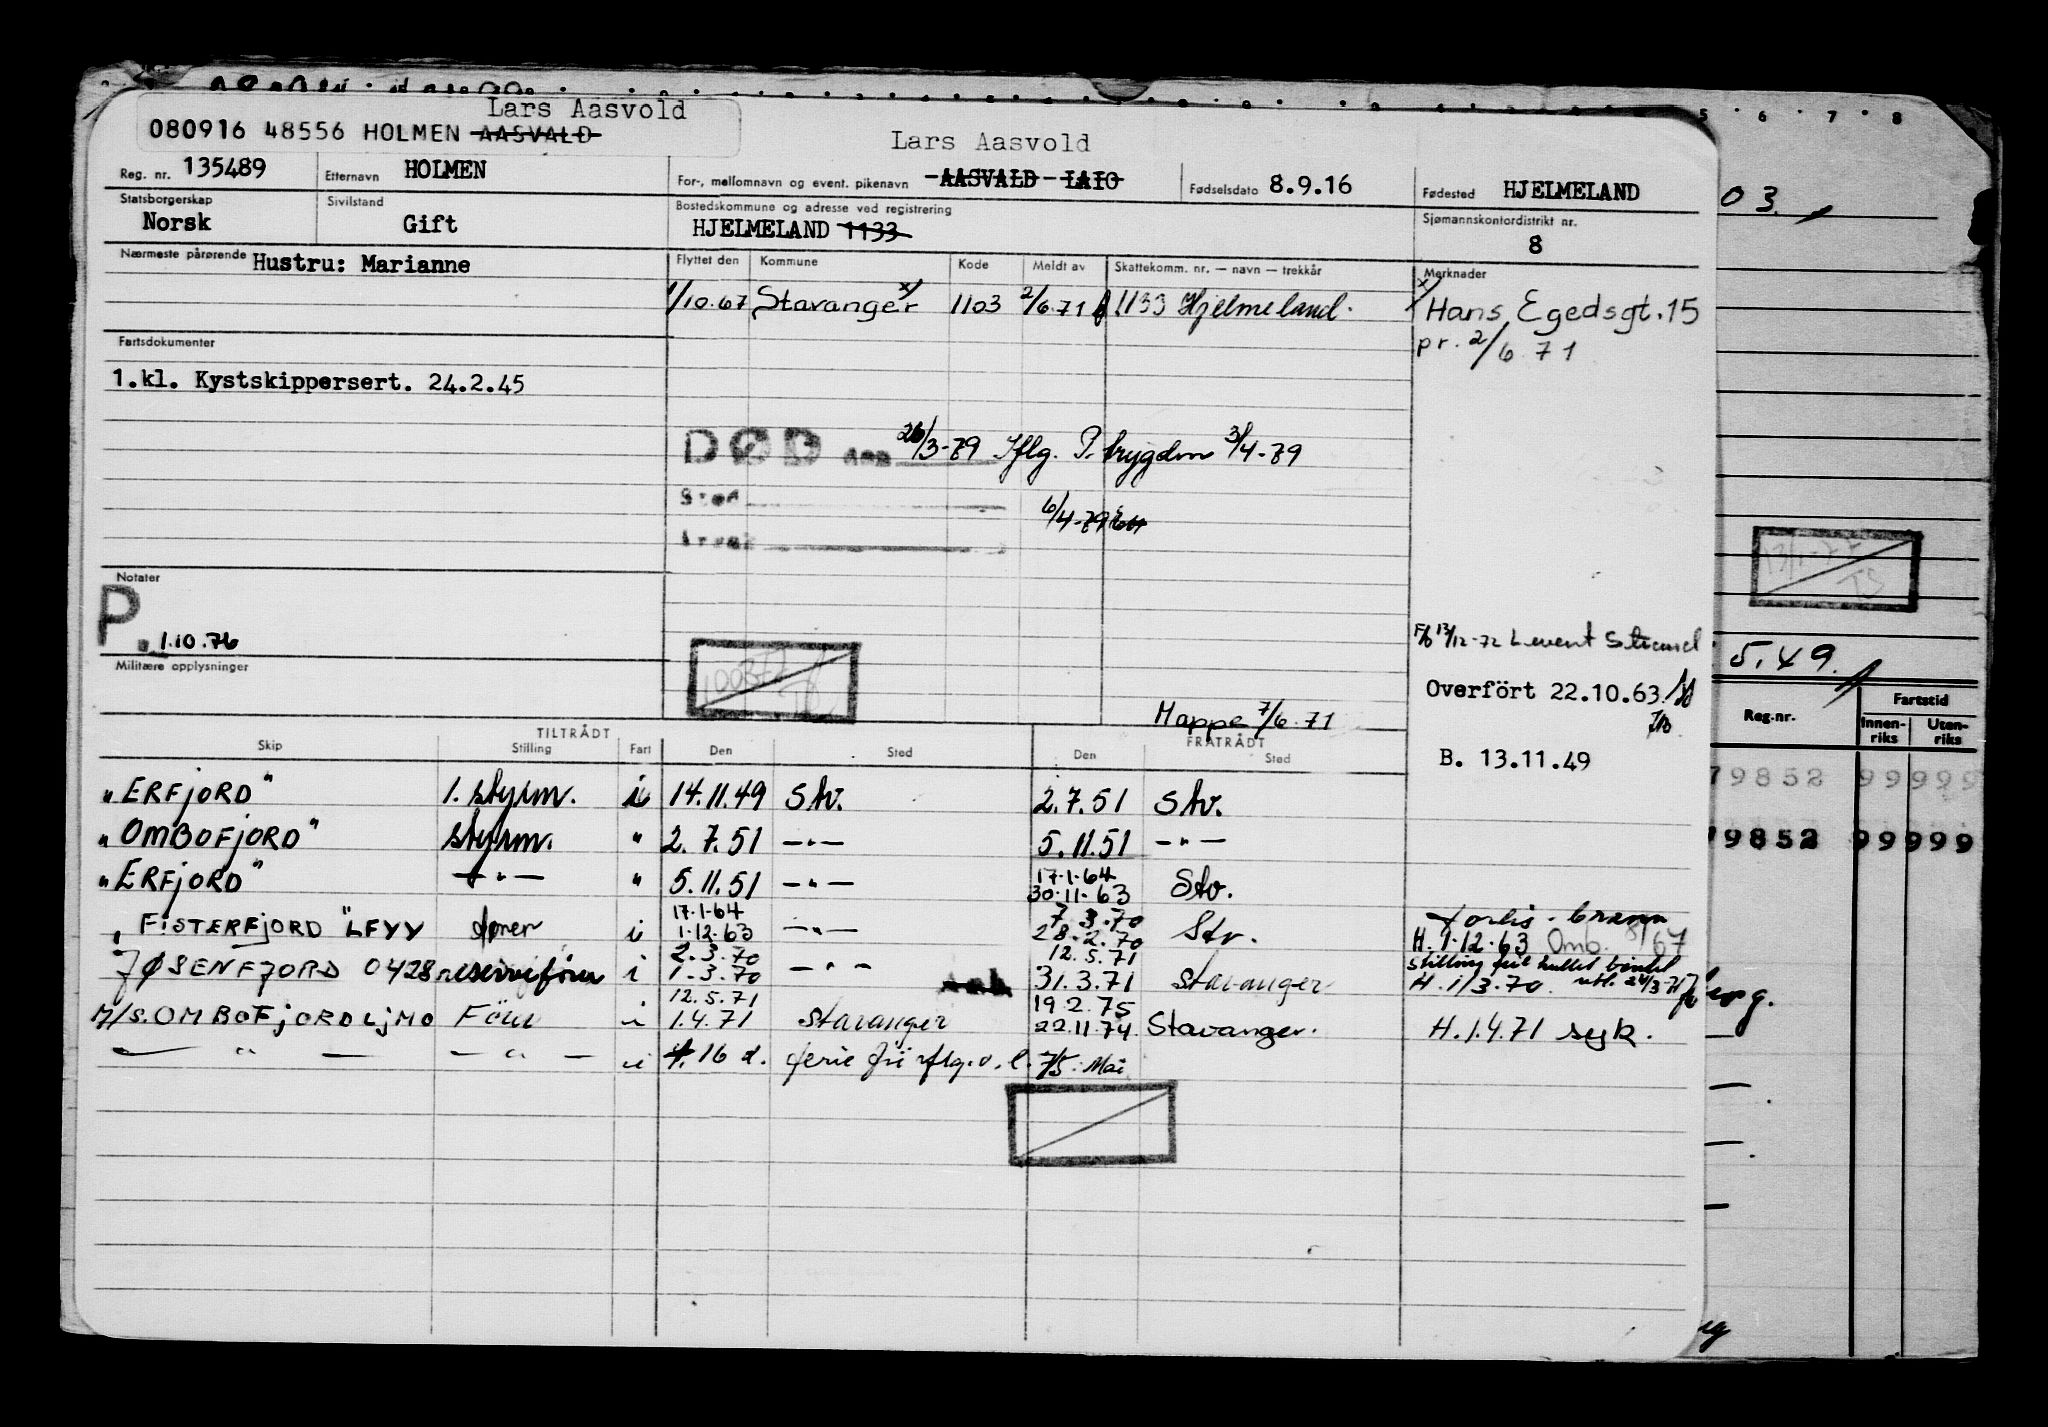 Lars Aasvold
080916 48556 HOLMEN AASVALD
Lars Aasvold
Reg. nr. 135489 Etternavn HOLMEN For-, mellomnavn og event. pikenavn AASVALD LAIO Fødselsdato 8.9.16 Fødested HJELMELAND
Statsborgerskap Norsk Sivilstand Gift Bostedskommune og adresse ved registrering HJELMELAND 1133 Sjømannskontordistrikt nr. 8
Nærmeste pårørende Hustru: Marianne
Flyttet den Kommune Kode Meldt av Skattekomm. nr. — navn — trekkår Merknader
1/10.67 Stavanger x/ 1103 2/6.71 1133 Hjelmeland. x/ Hans Egedsgt. 15
pr. 2/6 71
Fartsdokumenter
1.kl. Kystskippersert. 24.2.45
DØD den 26/3-79 Iflg. P. trygden 3/4-79
Sted
6/4-79
Årsak
Notater
P. 1.10.76
Militære opplysninger
13/12-72 Levent
Overført 22.10.63
Mappe 7/6.71
B. 13.11.49
TILTRÅDT FRATRÅDT
Skip Stilling Fart Den Sted Den Sted
"ERFJORD" 1. styrm. i 14.11.49 Stv. 2.7.51 Stv.
"OMBOFJORD" styrm. " 2.7.51 —"— 5.11.51 —"—
"ERFJORD" —"— " 5.11.51 —"— 17.1.64 30.11.63 Stv.
"FISTERFJORD" LFYY fører i 17.1.64 1.12.63 —"— 7.3.70 28.2.70 Stv. forlis - brann
H. 1.12.63 Omb. 67
JØSENFJORD 0428 reservefører i 2.3.70 1.3.70 —"— 12.5.71 31.3.71 Stavanger
H. 1/3.70.
M/S. OMBOFJORD LJMO Förer i 12.5.71 1.4.71 Stavanger 19.2.75 22.11.74 Stavanger. H. 1.4.71 syk.
— " — — " — i 16 d. ferie 75 Mai
5 6 7 8
03.
5.49.
Reg.nr. Fartstid
Innen-riks Uten-riks
79852 99999
79852 99999